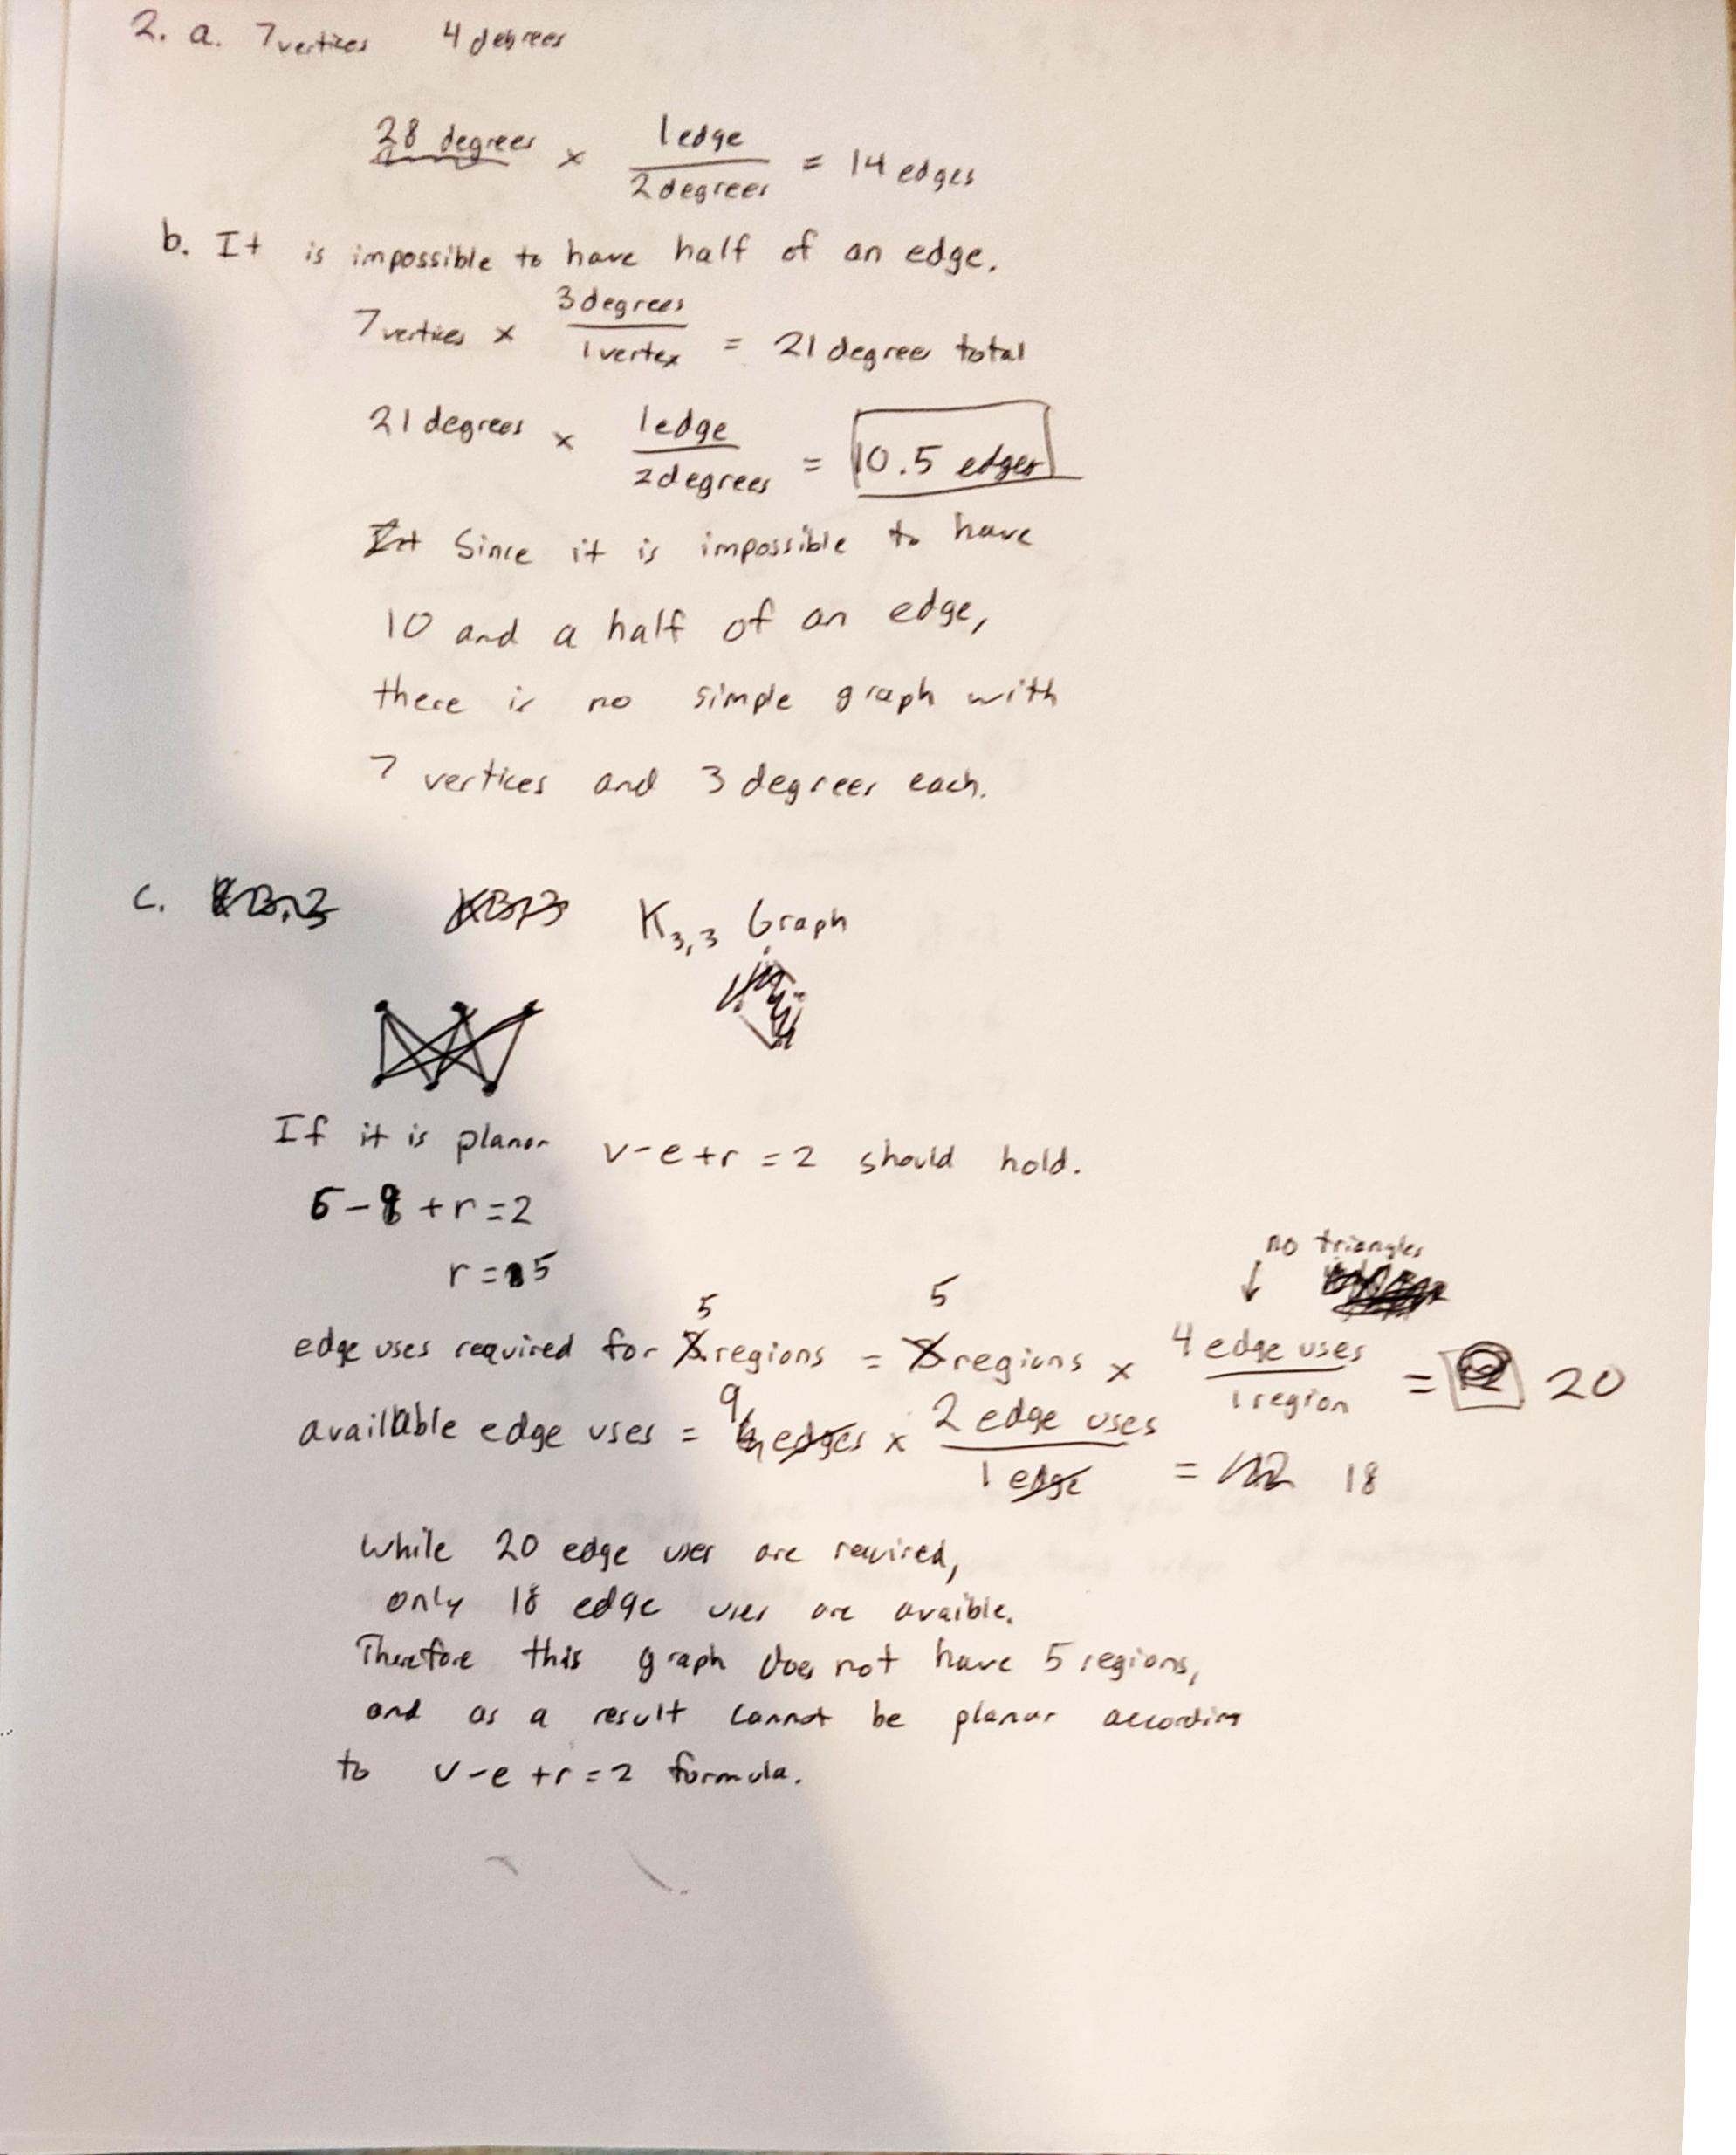 2. a. 7 vertices 4 degrees
28 degrees × 1 edge / 2 degrees = 14 edges
b. It is impossible to have half of an edge.
7 vertices × 3 degrees / 1 vertex = 21 degree total
21 degrees × 1 edge / 2 degrees = 10.5 edges
Since it is impossible to have
10 and a half of an edge,
there is no simple graph with
7 vertices and 3 degrees each.
c. K3,3 Graph
If it is planar v-e+r=2 should hold.
6-9+r=2
r=5
no triangles
↓
edge uses required for 5 regions = 5 regions × 4 edge uses / 1 region = 20
available edge uses = 9 edges × 2 edge uses / 1 edge = 18
While 20 edge uses are required,
only 18 edge uses are avaible.
Therefore this graph does not have 5 regions,
and as a result cannot be planar according
to v-e+r=2 formula.